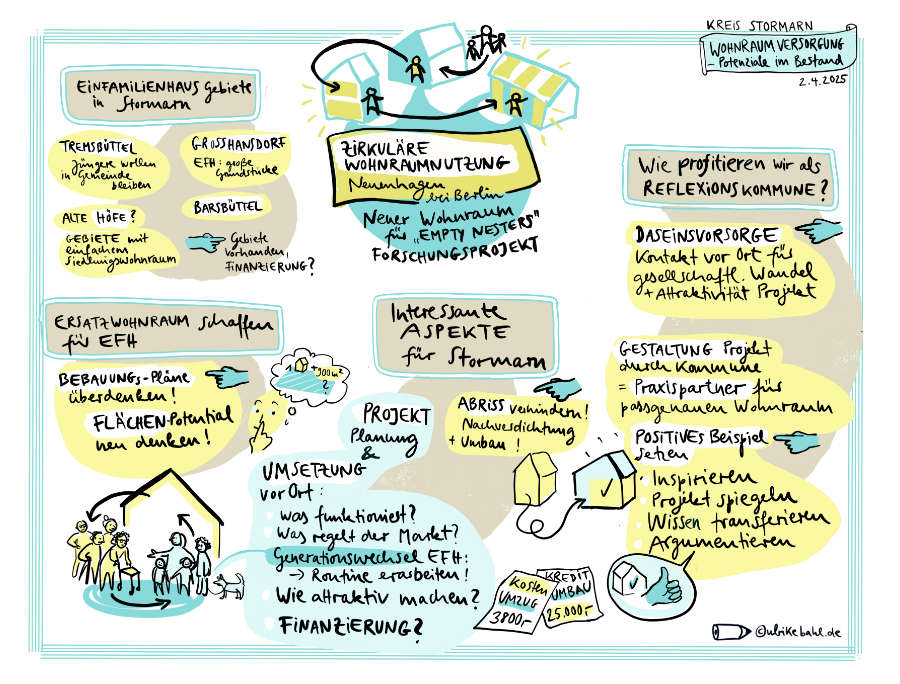 KREIS STORMARN
WOHNRAUMVERSORGUNG
– Potenziale im Bestand
2.4.2025
EINFAMILIENHAUS Gebiete
in Stormarn
TREMSBÜTTEL
Jüngere wollen
in Gemeinde
bleiben
GROSSHANSDORF
EFH: große
Grundstücke
ALTE HÖFE?
BARSBÜTTEL
GEBIETE mit
einfachem
Siedlungswohnraum
Gebiete
vorhanden,
FINANZIERUNG?
ZIRKULÄRE
WOHNRAUMNUTZUNG
Neuenhagen
bei Berlin
Neuer Wohnraum
für „EMPTY NESTERS"
FORSCHUNGSPROJEKT
Wie profitieren wir als
REFLEXIONSKOMMUNE?
DASEINSVORSORGE
Kontakt vor Ort für
gesellschaftl. Wandel
+ Attraktivität Projekt
GESTALTUNG Projekt
durch Kommune
= Praxispartner für
passgenauen Wohnraum
POSITIVES Beispiel
setzen
Inspirieren
Projekt spiegeln
Wissen transferieren
Argumentieren
ERSATZWOHNRAUM schaffen
für EFH
BEBAUUNGs-Pläne
überdenken!
FLÄCHEN-Potential
neu denken!
+900m²
?
Interessante
ASPEKTE
für Stormarn
ABRISS verhindern!
Nachverdichtung
+ Umbau!
PROJEKT
Planung
&
UMSETZUNG
vor Ort:
Was funktioniert?
Was regelt der Markt?
Generationswechsel EFH:
→ Routine erarbeiten!
Wie attraktiv machen?
FINANZIERUNG?
Kosten
UMZUG
3800,-
KREDIT
UMBAU
25.000,-
©ulrikebahl.de